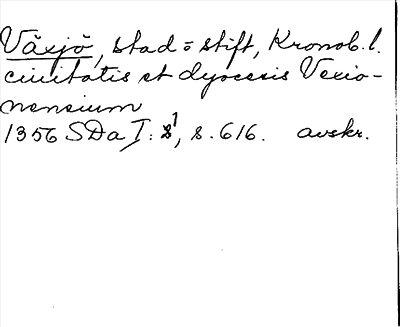 Växjö, stad o stift, Kronob. l.
ciuitatis et dyocesis Vexio-
nensium
1356 SDa I: 1, s. 616. avskr.